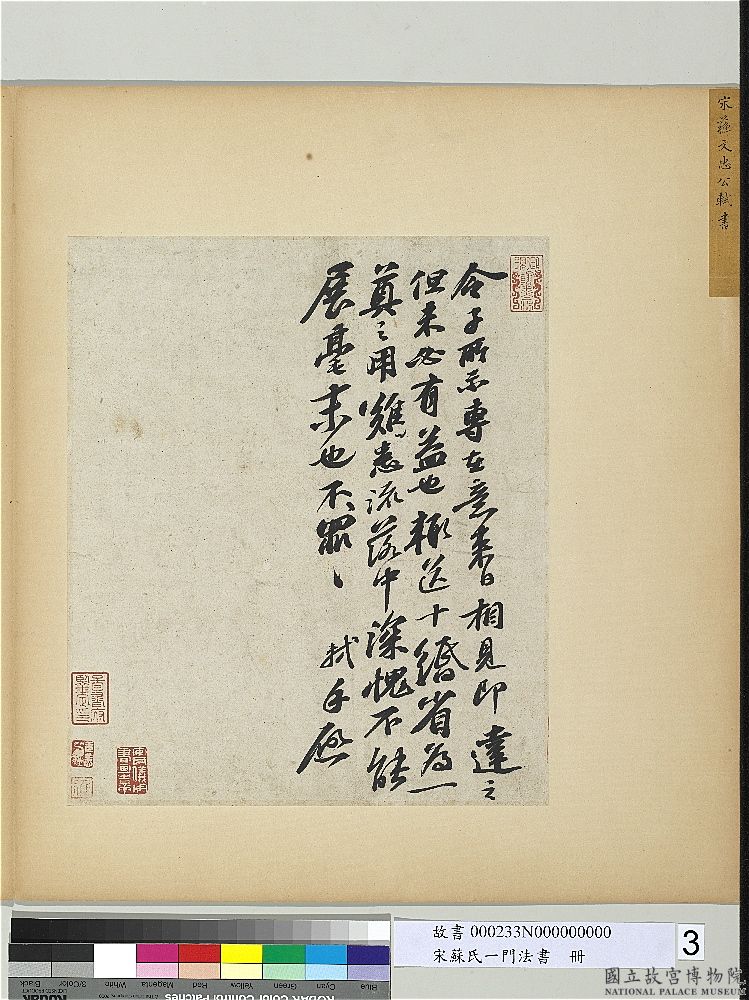 宋蘇文忠公軾書
令子所示專在意來日相見即達之
但未必有益也輙送十緡省為一
奠之用難患流落中深愧不能
展毫末也不罪〻
軾手啟
故書 000233N000000000
宋蘇氏一門法書 冊
3
Blue Cyan Green Yellow Red Magenta White 3/Color Black
KODAK Color Control Patches
國立故宮博物院
NATIONAL PALACE MUSEUM